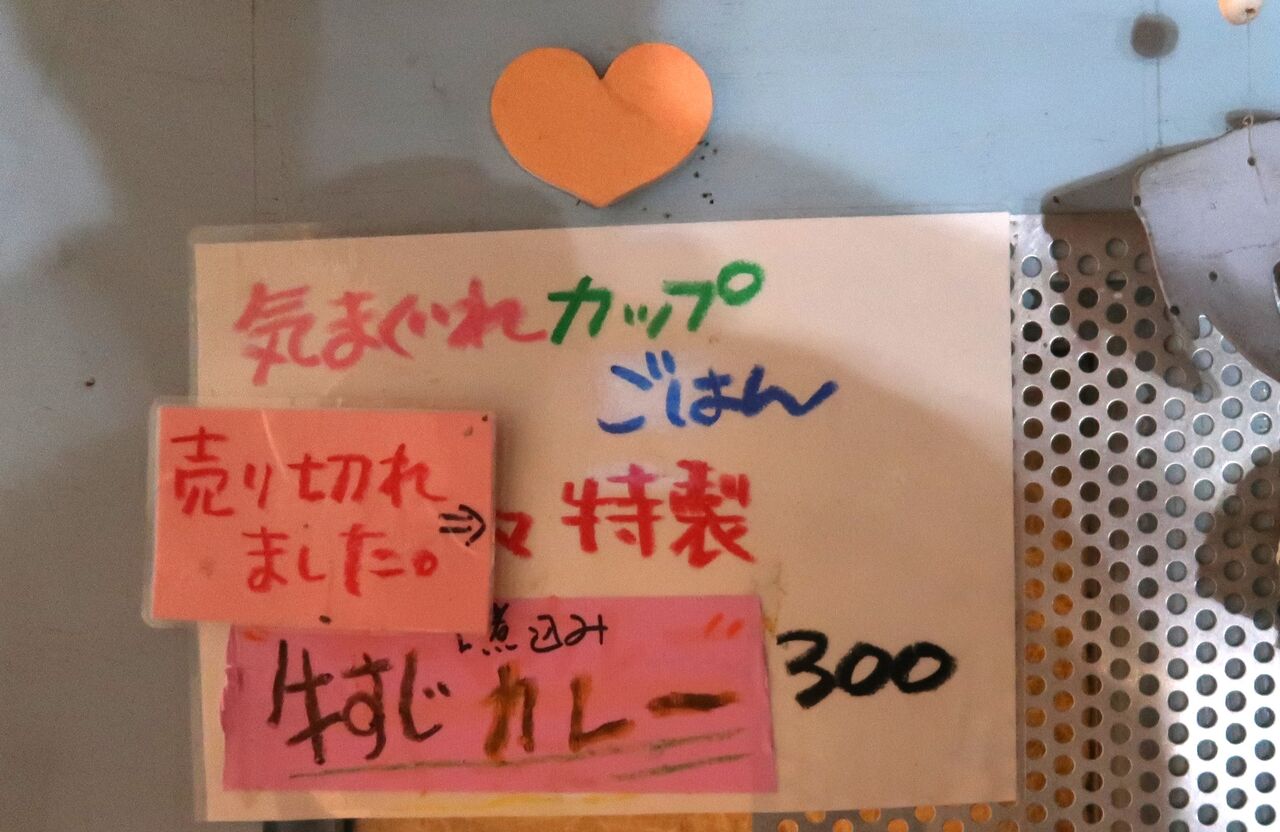 気まぐれカップ
ごはん
売り切れ
ました。⇒
々特製
煮込み
牛すじカレー
300